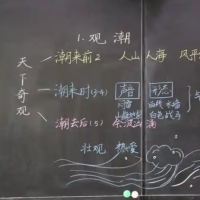 1. 观潮
天下奇观
潮来前2 人山人海 风平
潮来时(3-4) 声音 形态
闷雷 白线 水墙
白色战马
潮去后(5) 余波
壮观 热爱